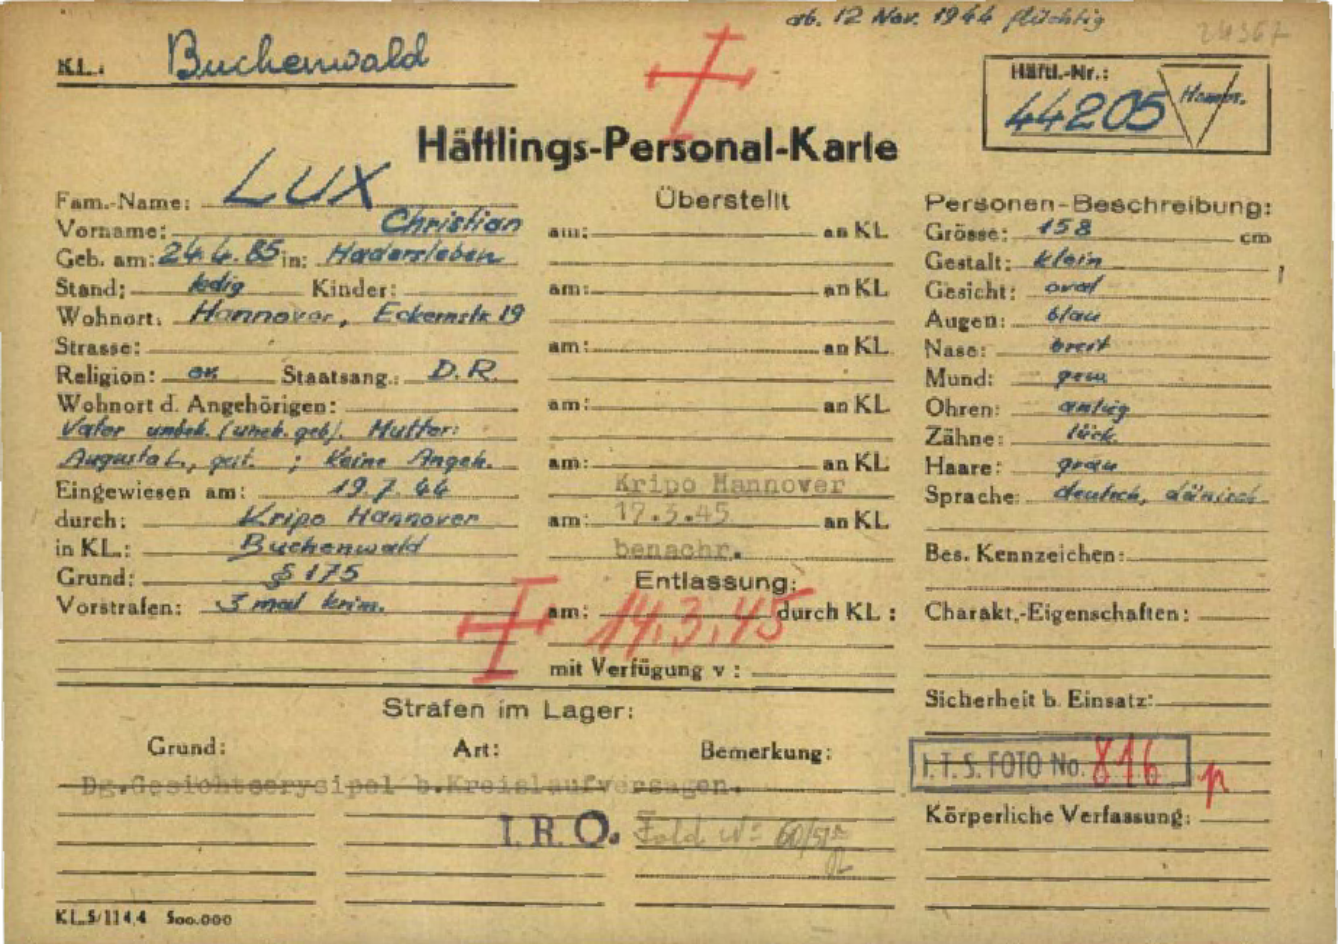 ab. 12 Nov. 1944 flüchtig
24367
KL.: Buchenwald
Häftl.-Nr.:
44205 Homos.
Häftlings-Personal-Karte
Fam.-Name: LUX
Vorname: Christian
Geb. am: 24.4.85 in: Hadersleben
Stand: ledig Kinder:
Wohnort: Hannover, Eckernstr. 19
Strasse:
Religion: Staatsang.: D.R.
Wohnort d. Angehörigen:
Vater unbek. (uneh. geb). Mutter:
Augusta L., gest. ; Keine Angeh.
Eingewiesen am: 19.7.44
durch: Kripo Hannover
in KL.: Buchenwald
Grund: § 175
Vorstrafen: 3 mal krim.
Überstellt
am: an KL
am: an KL
am: an KL
am: an KL
am: an KL
Kripo Hannover
am: 17.3.45 an KL
benachr.
Entlassung:
am: 14.3.45 durch KL :
mit Verfügung v :
Personen-Beschreibung:
Grösse: 158 cm
Gestalt: klein
Gesicht: oval
Augen: blau
Nase: breit
Mund: gew.
Ohren:
Zähne: lück.
Haare: grau
Sprache: deutsch, dänisch
Bes. Kennzeichen:
Charakt.-Eigenschaften:
Sicherheit b. Einsatz:
I.T.S. FOTO No. 816
Körperliche Verfassung:
Strafen im Lager:
Grund: Art: Bemerkung:
Dg.Gesichtserysipel b.Kreislaufversagen.
I.R.O.
KL.5/11 4.4 500.000